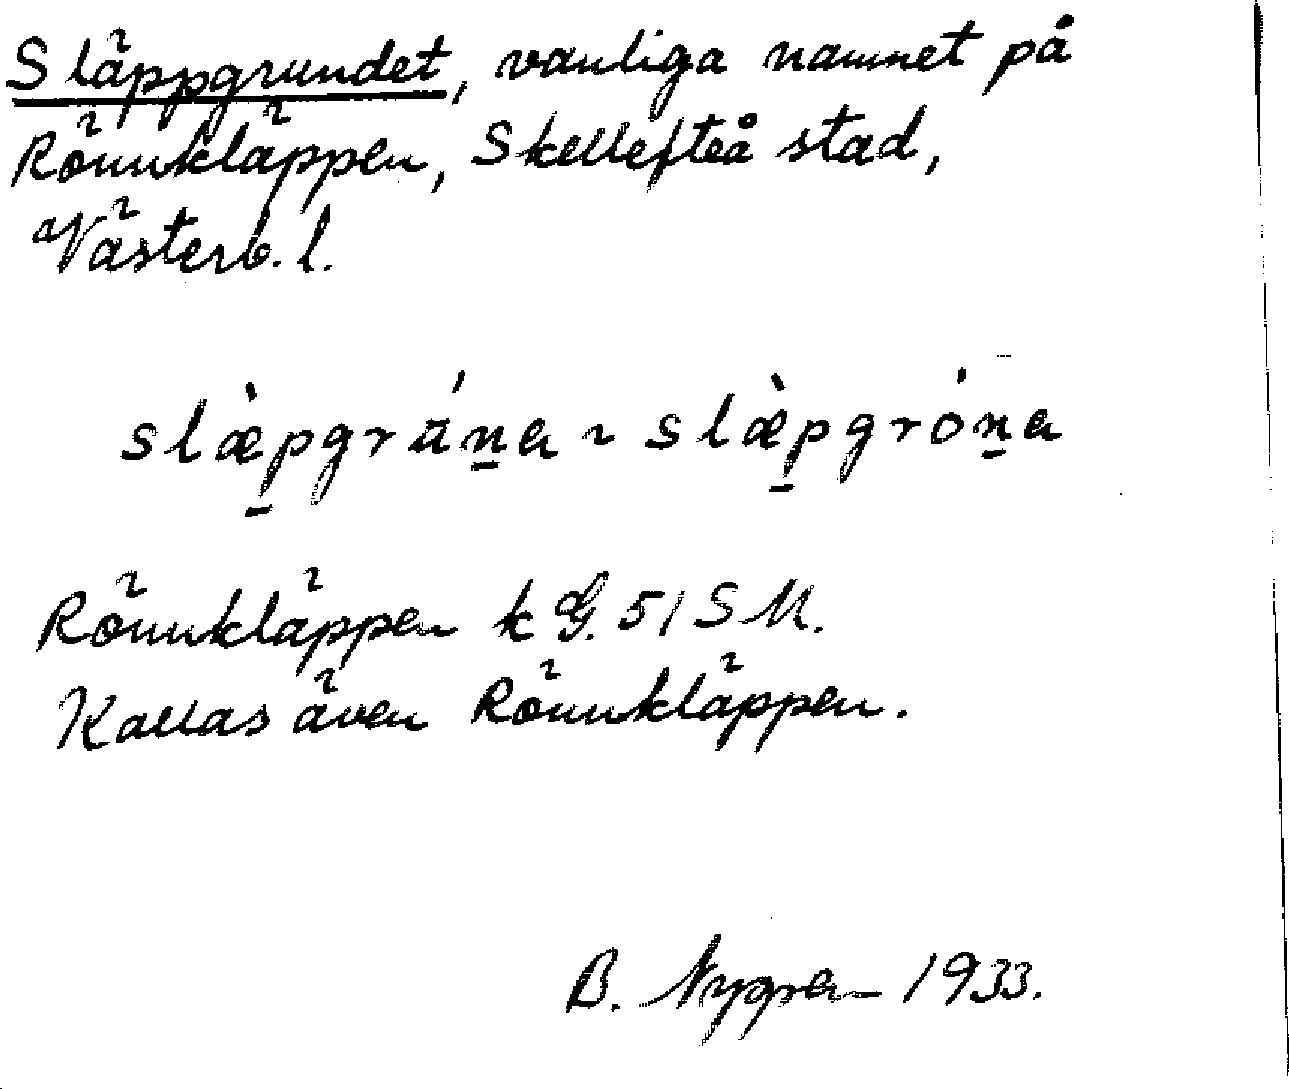 Släppgrundet, vanliga namnet på
Rönnkläppen, Skellefteå stad,
Västerb. l.
slæ̀p̠gráṉa ~ slæ̀p̠gróṉa
Rönnkläppen k G. 51 S M.
Kallas även Rönnkläppen.
B. Nygren 1933.